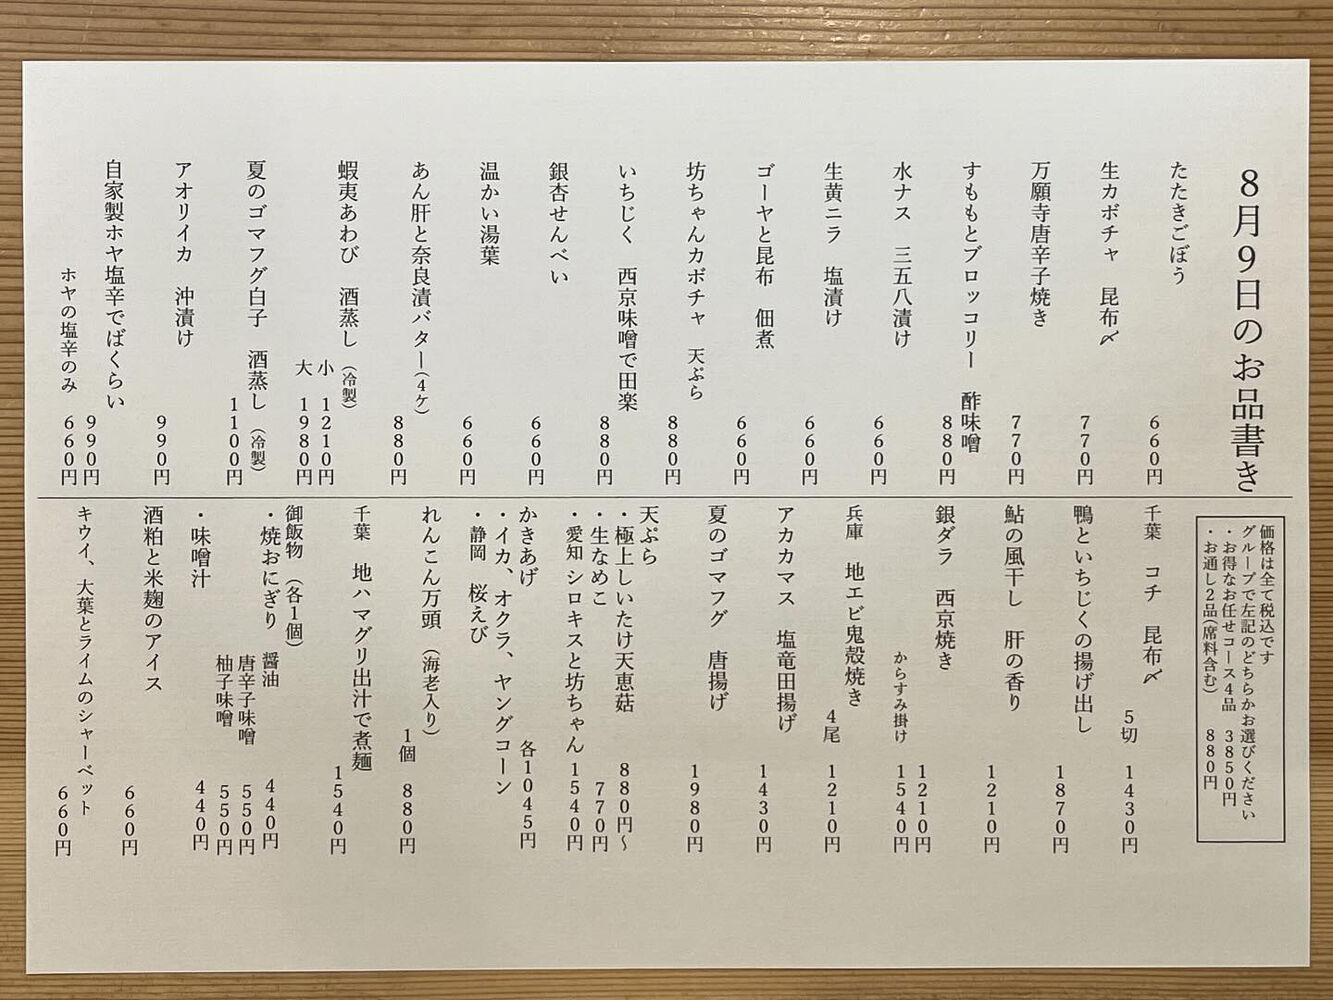 8月9日のお品書き
たたきごぼう 660円
生カボチャ 昆布〆 770円
万願寺唐辛子焼き 770円
すももとブロッコリー 酢味噌 880円
水ナス 三五八漬け 660円
生黄ニラ 塩漬け 660円
ゴーヤと昆布 佃煮 660円
坊ちゃんカボチャ 天ぷら 880円
いちじく 西京味噌で田楽 880円
銀杏せんべい 660円
温かい湯葉 660円
あん肝と奈良漬バター(4ケ) 880円
蝦夷あわび 酒蒸し(冷製)
小 1210円
大 1980円
夏のゴマフグ白子 酒蒸し(冷製) 1100円
アオリイカ 沖漬け 990円
自家製ホヤ塩辛でばくらい 990円
ホヤの塩辛のみ 660円
価格は全て税込です
グループで左記のどちらかお選びください
・お得なお任せコース4品 3850円
・お通し2品(席料含む) 880円
千葉 コチ 昆布〆 5切 1430円
鴨といちじくの揚げ出し 1870円
鮎の風干し 肝の香り 1210円
銀ダラ 西京焼き 1210円
からすみ掛け 1540円
兵庫 地エビ鬼殻焼き 4尾 1210円
アカカマス 塩竜田揚げ 1430円
夏のゴマフグ 唐揚げ 1980円
天ぷら
・極上しいたけ天恵菇 880円〜
・生なめこ 770円
・愛知 シロキスと坊ちゃん 1540円
かきあげ 各1045円
・イカ、オクラ、ヤングコーン
・静岡 桜えび
れんこん万頭(海老入り) 1個 880円
千葉 地ハマグリ出汁で煮麺 1540円
御飯物(各1個)
・焼おにぎり 醤油 440円
唐辛子味噌 550円
柚子味噌 550円
・味噌汁 440円
酒粕と米麹のアイス 660円
キウイ、大葉とライムのシャーベット 660円